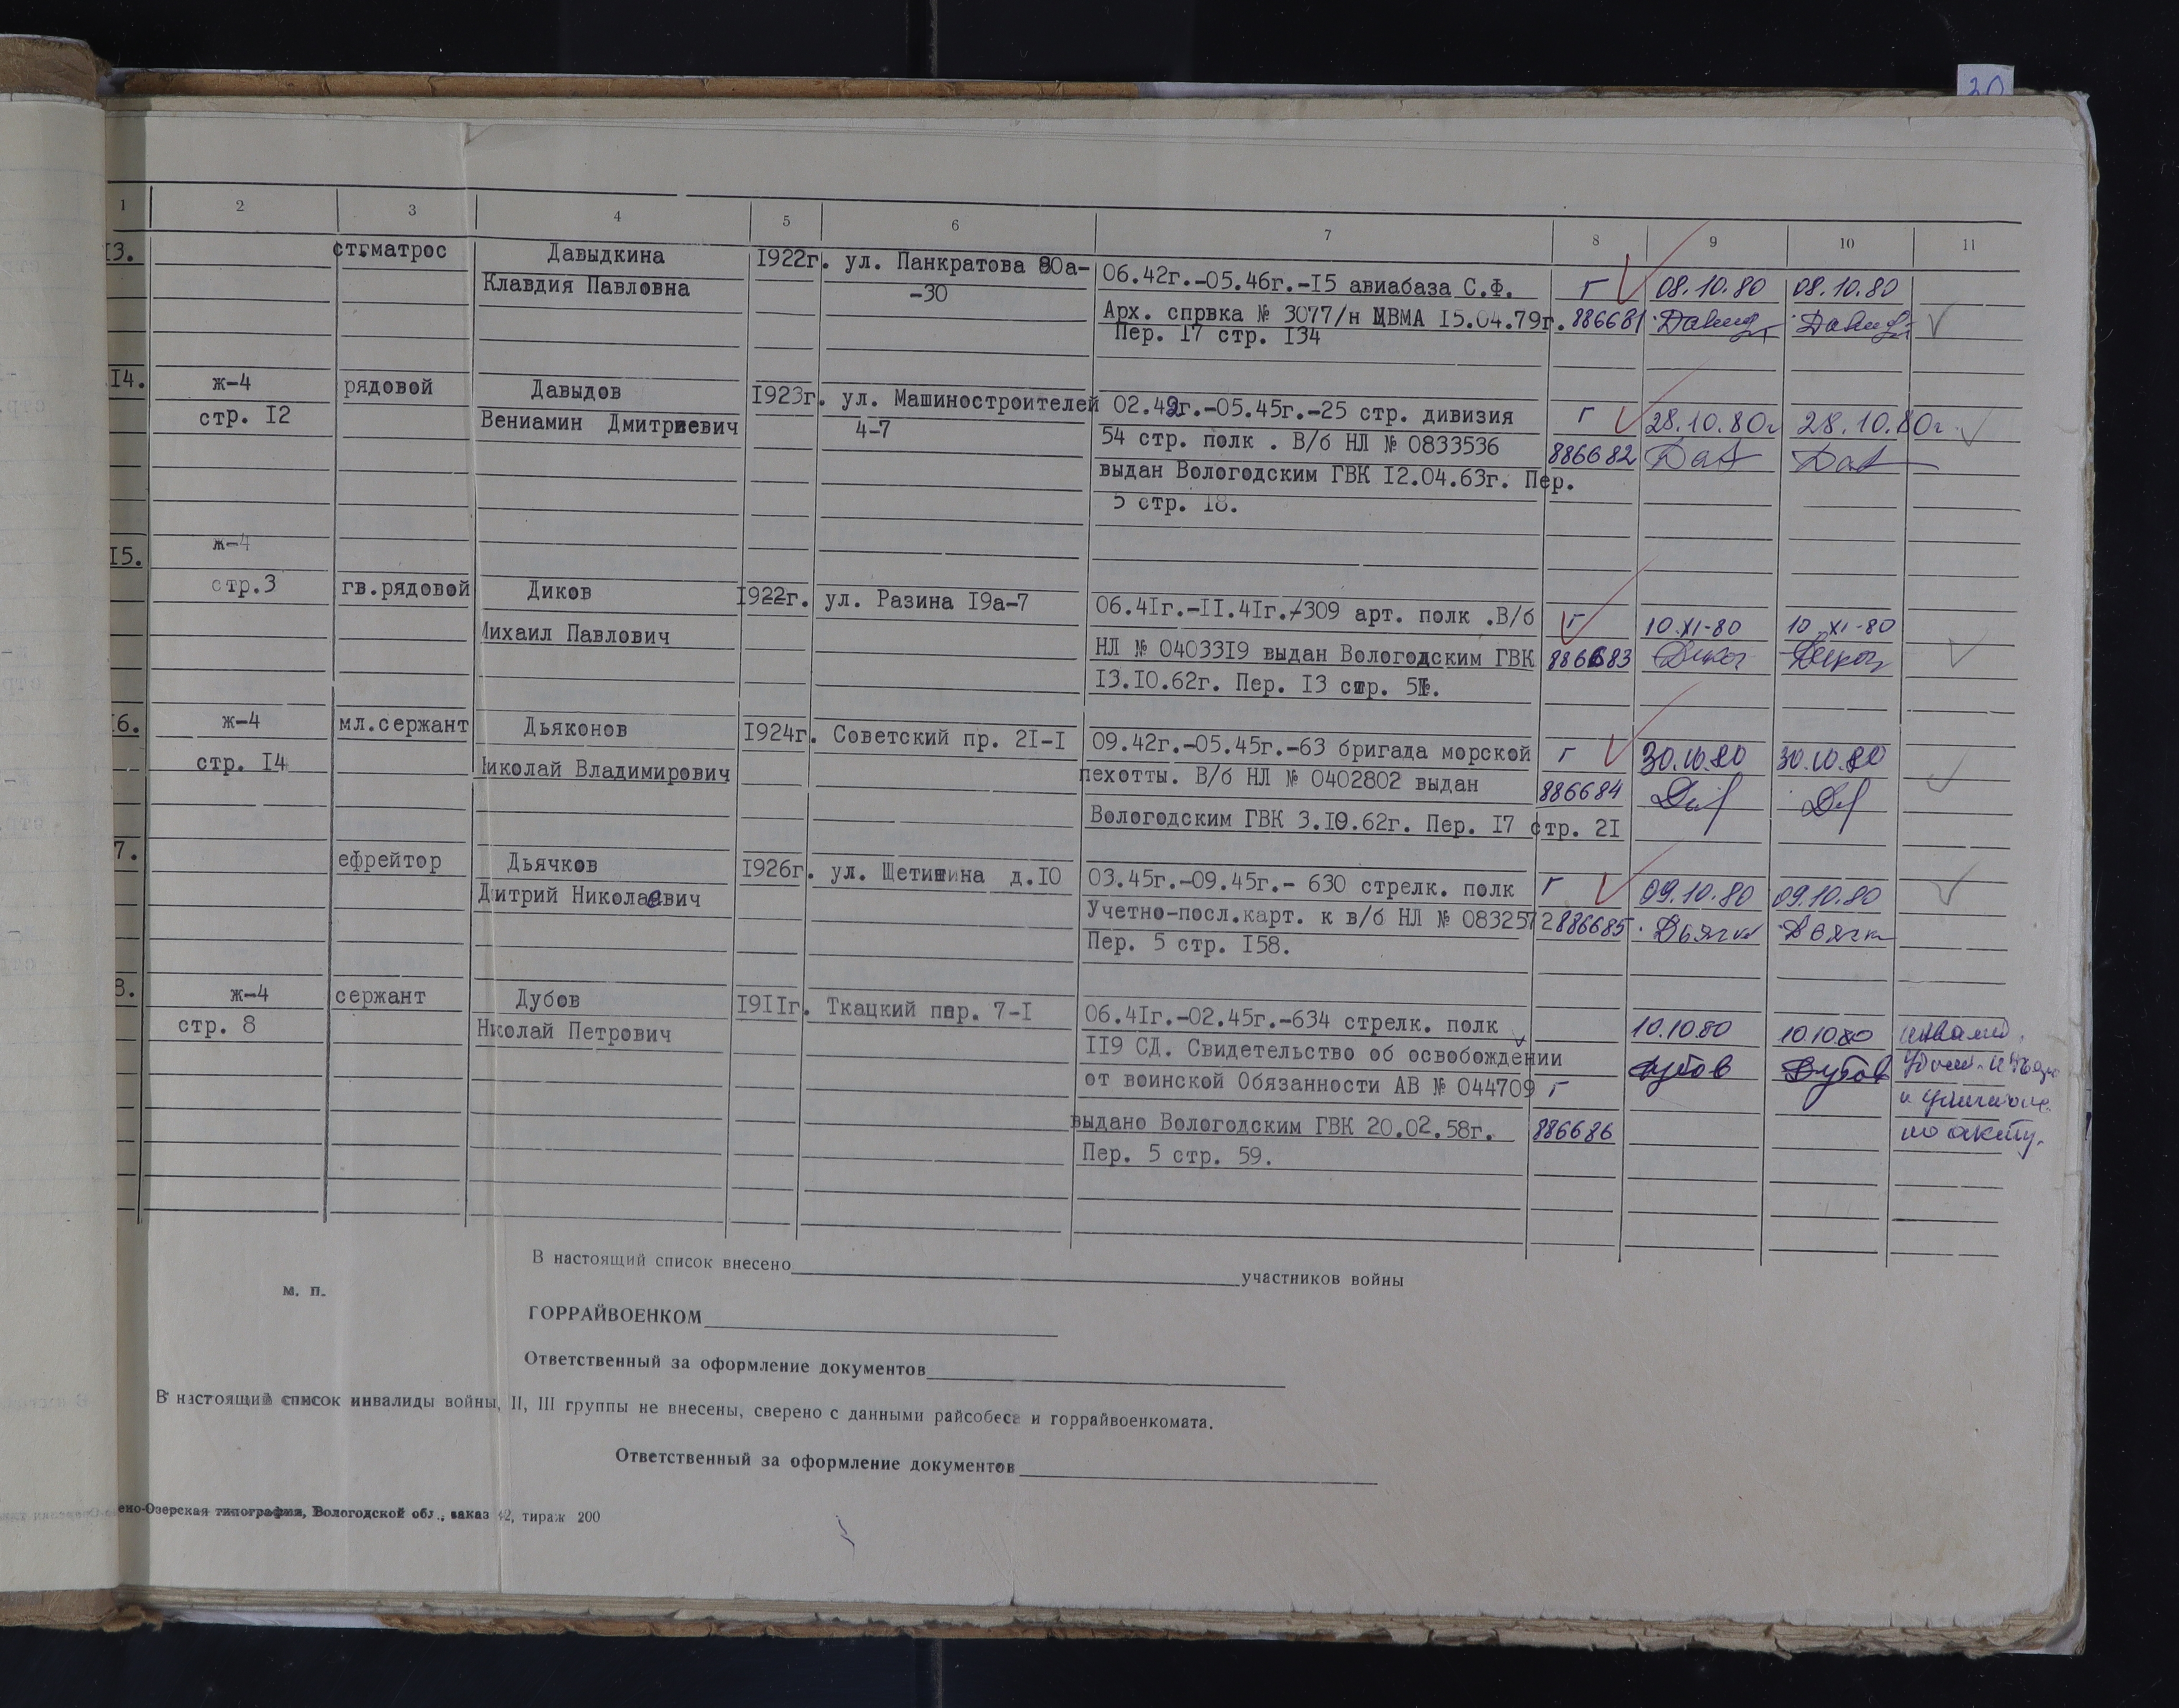 30
1 2 3 4 5 6 7 8 9 10 11
13. ст.матрос Давыдкина 1922г. ул. Панкратова 80а- 06.42г.-05.46г.-15 авиабаза С.Ф. г 08.10.80 08.10.80
Клавдия Павловна -30 Арх. спрвка № 3077/н ЦВМА 15.04.79г. 886681
Пер. 17 стр. 134
14. ж-4 рядовой Давыдов 1923г. ул. Машиностроителей 02.42г.-05.45г.-25 стр. дивизия г 28.10.80г 28.10.80г.
стр. 12 Вениамин Дмитриевич 4-7 54 стр. полк . В/б НЛ № 0833536 886682
выдан Вологодским ГВК 12.04.63г. Пер.
5 стр. 18.
15. ж-4
стр.3 гв.рядовой Диков 1922г. ул. Разина 19а-7 06.41г.-11.41г.-309 арт. полк .В/б г 10.XI-80 10.XI-80
Михаил Павлович НЛ № 0403319 выдан Вологодским ГВК 886683
13.10.62г. Пер. 13 стр. 51.
16. ж-4 мл.сержант Дьяконов 1924г. Советский пр. 21-1 09.42г.-05.45г.-63 бригада морской г 30.10.80 30.10.80
стр. 14 Николай Владимирович пехотты. В/б НЛ № 0402802 выдан 886684
Вологодским ГВК 3.10.62г. Пер. 17 стр. 21
7. ефрейтор Дьячков 1926г. ул. Щетинина д.10 03.45г.-09.45г.- 630 стрелк. полк г 09.10.80 09.10.80
Дитрий Николаевич Учетно-посл.карт. к в/б НЛ № 0832572 886685 Дьячк Дьячк
Пер. 5 стр. 158.
8. ж-4 сержант Дубов 1911г. Ткацкий пер. 7-1 06.41г.-02.45г.-634 стрелк. полк 10.10.80 10.10.80
стр. 8 Николай Петрович 119 СД. Свидетельство об освобождении Дубов Дубов
от воинской Обязанности АВ № 044709 г
выдано Вологодским ГВК 20.02.58г. 886686 по акту.
Пер. 5 стр. 59.
В настоящий список внесено участников войны
м. п.
ГОРРАЙВОЕНКОМ
Ответственный за оформление документов
В настоящий список инвалиды войны, II, III группы не внесены, сверено с данными райсобеса и горрайвоенкомата.
Ответственный за оформление документов
ено-Озерская типография, Вологодской обл., заказ 42, тираж 200